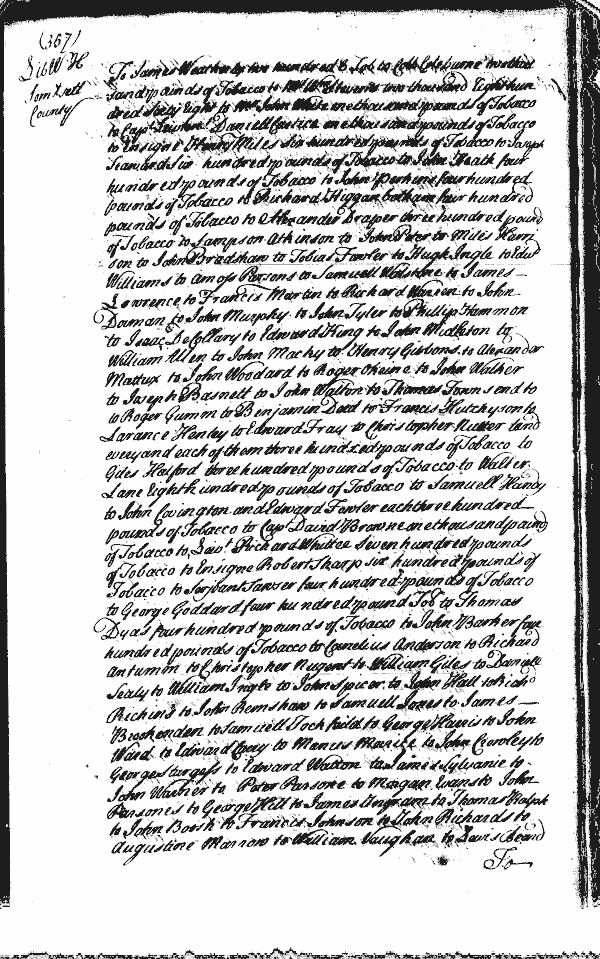 (367)
Lib W H
Som Sett
County
To James Weatherly two hundred & Tob to Coll Colebourne two thou
Sand pounds of Tobacco to Mr Wm Stevens two thousand Eight hun
dred Sixty Eight to Mr John White one thousand pounds of Tobacco
to Capt Daniell Custice one thousand pounds of Tobacco
to Ensigne Henry Miles Six hundred pounds of Tobacco to Joseph
Seaward Six hundred pounds of Tobacco to John Heath four
hundred pounds of Tobacco to John Perkins four hundred
pounds of Tobacco to Richard Higganbotham four hundred
pounds of Tobacco to Alexander Draper three hundred pound
of Tobacco to Sampson Atkinson to John Peter to Miles Harri
son to John Bradshaw to Tobias Fowler to Hugh Ingle to Edwd
Williams to Amoss Parsons to Samuell to James
Lawrence to Francis Martin to Richard Warren to John
Dorman to John Murphy to John Tyler to Phillip Hammon
to Isaac De Collary to Edward King to John Midleton to
William Allen to John Macky to Henry Gibbons to Alexander
Mattux to John Woodard to Roger Okeine to John Walker
to Joseph Basnett to John Walton to Thomas Townsend to
to Roger Gumm to Benjamin Dod to Francis Hutchyson to
Larance Henley to Edward Fray to Christopher Nutter
every and each of them three hundred pounds of Tobacco to
Giles Halford three hundred pounds of Tobacco to Walter
Lane Eighth undred pounds of Tobacco to Samuell Handy
to John Covington and Edward Fowler each three hundred
pounds of Tobacco to Capt David Browne one thousand pound
of Tobacco to Leivt Richard Whittee Seven hundred pounds
of Tobacco to Ensigne Robert Tharp six hundred pounds of
Tobacco to Serjeant Tawser four hundred pounds of Tobacco
to George Goddard four hundred pound Tob to Thomas
Dyas four hundred pounds of Tobacco to John Barker four
hundred pounds of Tobacco to Cornelius Anderson to Richard
Antumon to Christopher Nugent to William Giles to Daniell
Sealy to William Ingle to John Spicer to John Hall to Richd
Richins to John Remshaw to Samuell Jones to James
Brookenden to Samuell Jockfeild to George Harris to John
Ward to Edward Cary to Menus Manice to John Crowley to
George Sturgess to Edward Watton to James Sylvanie to
John Warner to Peter Parsone to Morgan Evans to John
Parsones to George Hill to James Ingram to Thomas Ralph
to John Booth to Francis Johnson to John Richards to
Augustine Marrow to William Vaughan to Lewis Beard
To